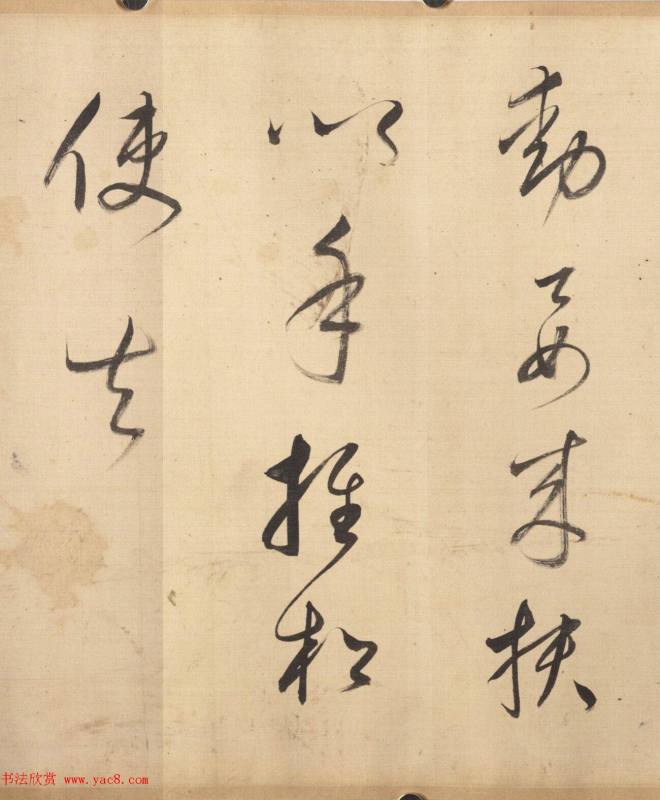 動要來扶
以手推松
使去
书法欣赏 www.yac8.com